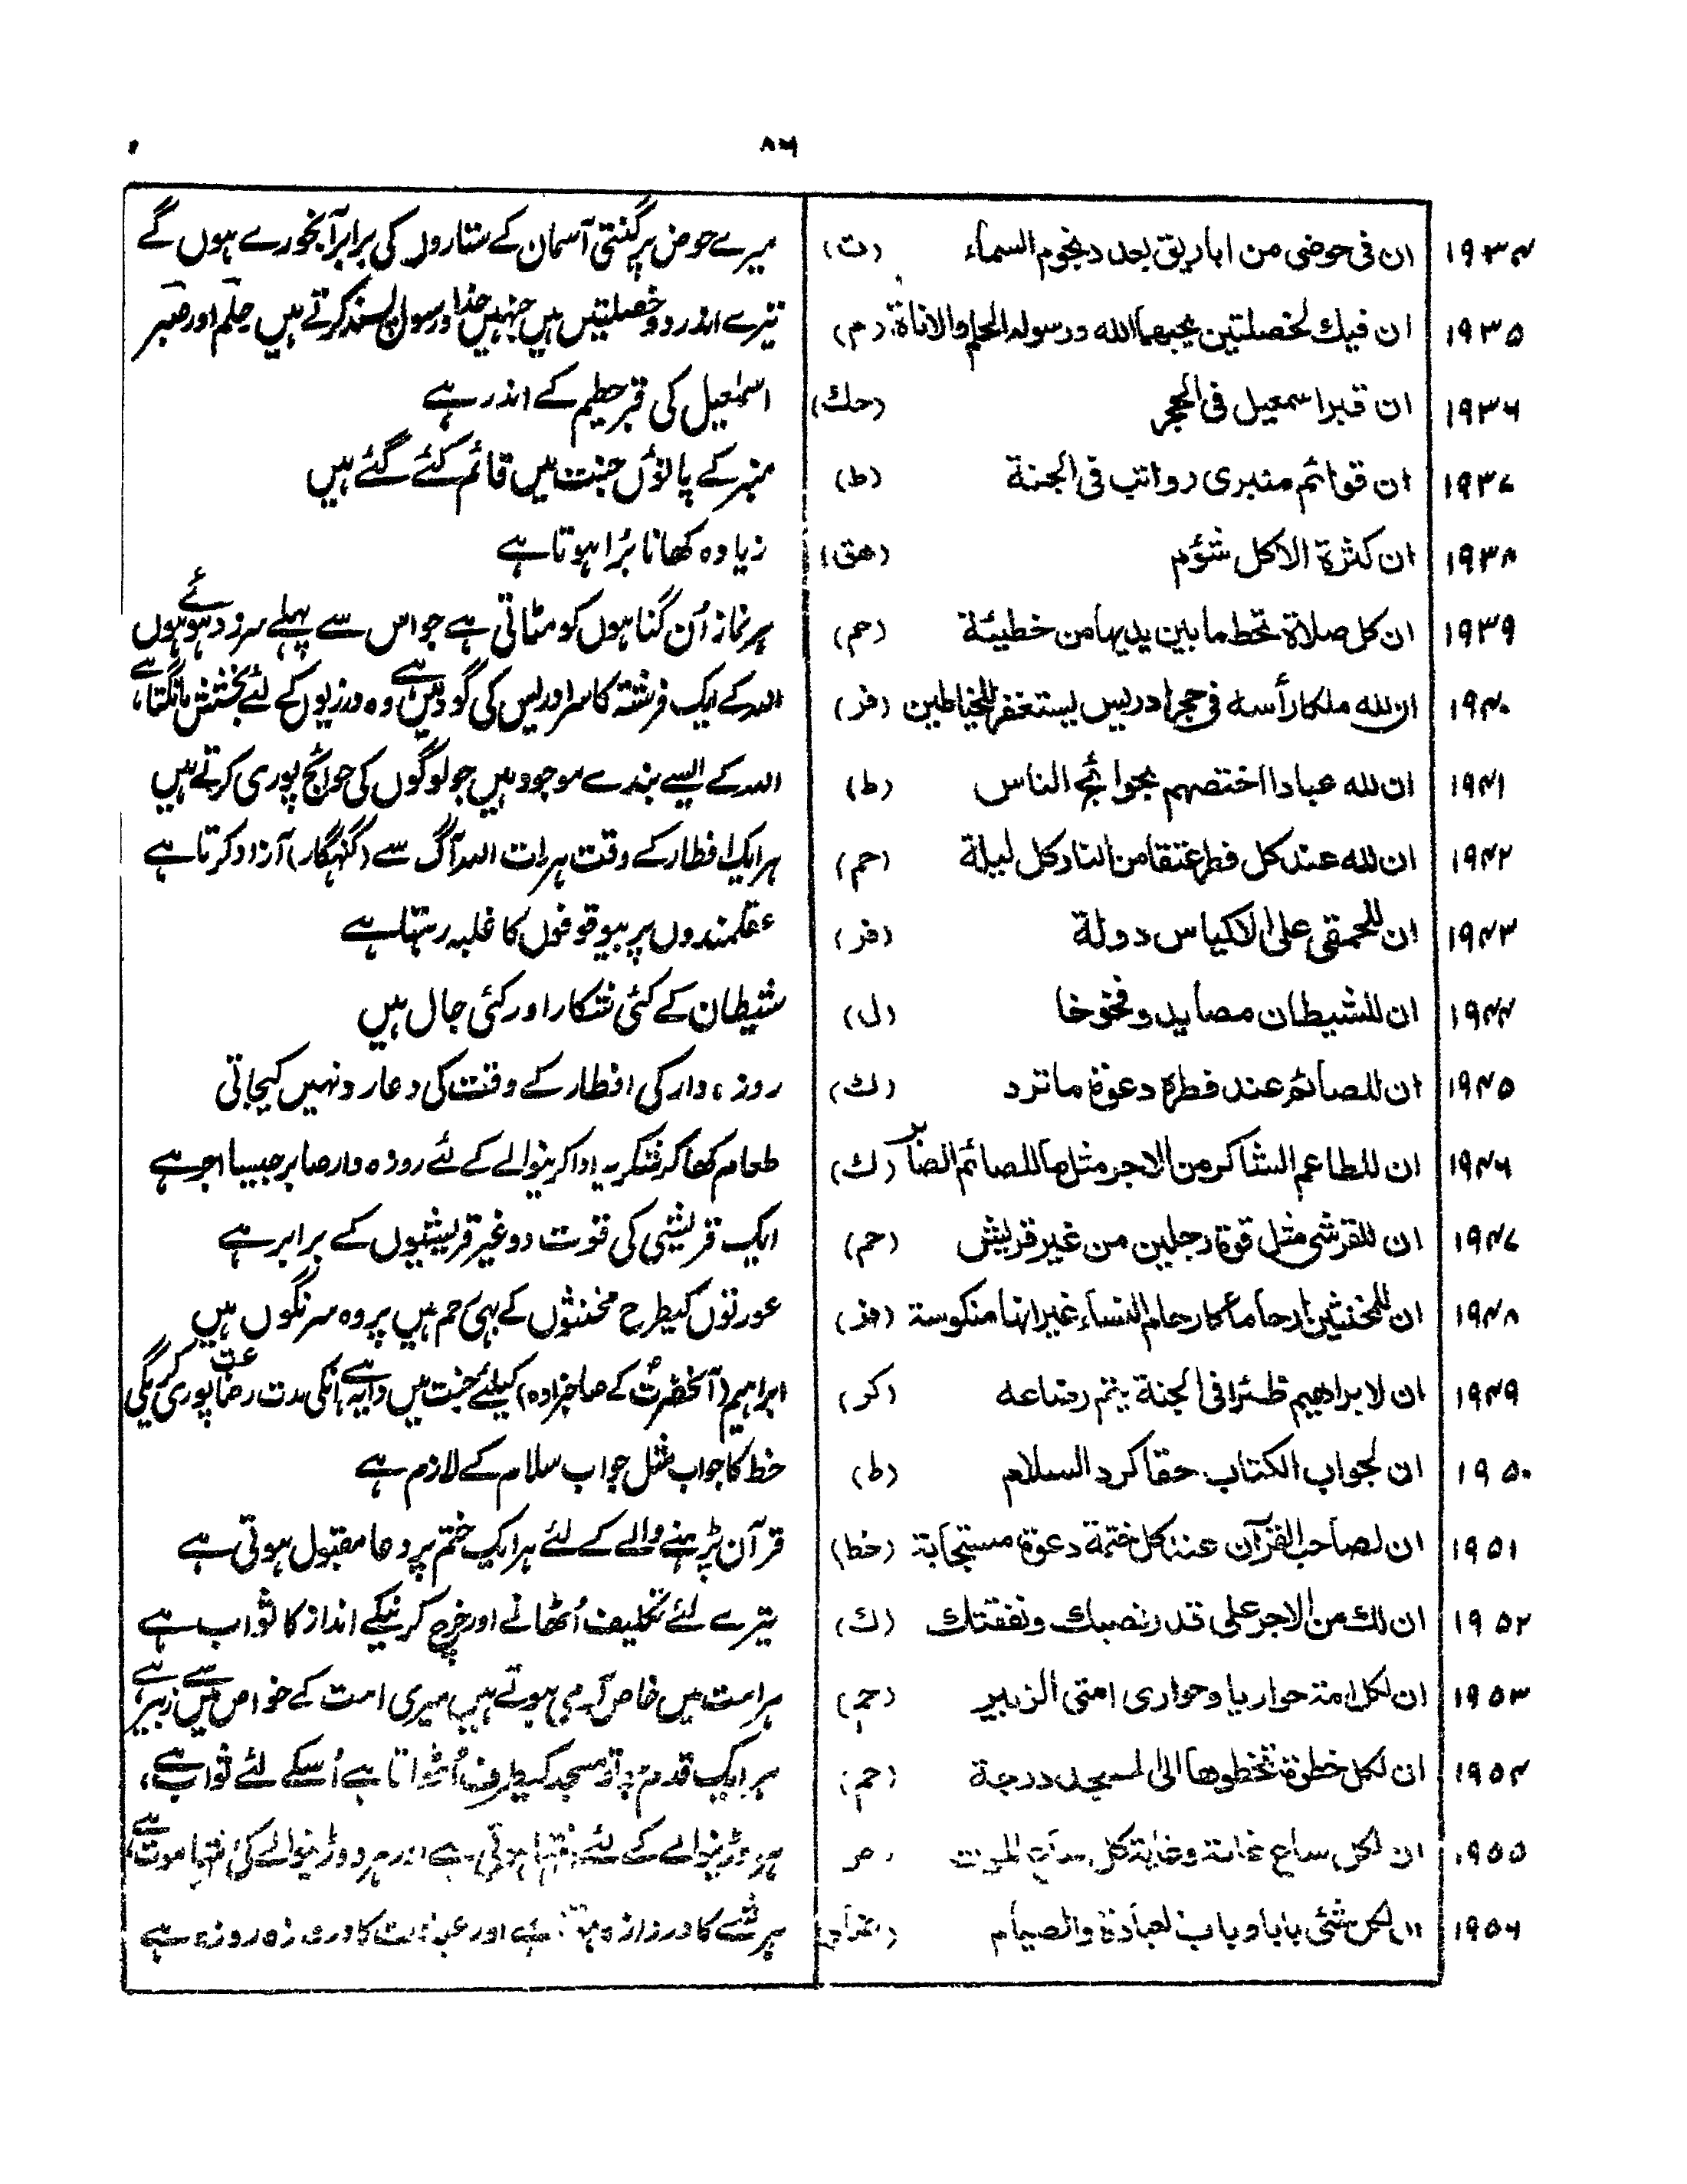 ۸۶
۱۹۳۴ ان فی حوضی من اباریق بعدد نجوم السماء (ت) میرے حوض پر گنتی آسمان کے ستاروں کی برابر آبخورے ہوں گے
۱۹۳۵ ان فیك لخصلتین یحبهما الله ورسوله الحلم والاناة (م) تیرے اندر دو خصلتیں ہیں جنہیں خدا ورسول پسند کرتے ہیں حلم اور صبر
۱۹۳۶ ان قبر اسمعیل فی الحجر (حك) اسمٰعیل کی قبر حطیم کے اندر ہے
۱۹۳۷ ان قوائم منبری رواتب فی الجنة (ط) منبر کے پائوں جنت میں قائم کئے گئے ہیں
۱۹۳۸ ان کثرة الاکل شؤم (هق) زیادہ کھانا بُرا ہوتا ہے
۱۹۳۹ ان کل صلاة تحط ما بین یدیها من خطیئة (حم) ہر نماز اُن گناہوں کو مٹاتی ہے جو اس سے پہلے سرزد ہوئے ہوں
۱۹۴۰ ان لله ملکا رأسه فی حجر ادریس یستغفر للخیاطین (فر) اللہ کے ایک فرشتہ کا سر ادریس کی گود میں ہے وہ درزیوں کے لئے بخشش مانگتا ہے
۱۹۴۱ ان لله عبادا اختصهم بحوائج الناس (ط) اللہ کے ایسے بندے موجود ہیں جو لوگوں کی حوائج پوری کرتے ہیں
۱۹۴۲ ان لله عند کل فطر عتقا من النار کل لیلة (حم) ہر ایک افطار کے وقت ہر رات اللہ آگ سے (گنہگار) آزاد کرتا ہے
۱۹۴۳ ان للحمقی علی الاکیاس دولة (فر) عقلمندوں پر بیوقوفوں کا غلبہ رہتا ہے
۱۹۴۴ ان للشیطان مصاید و فخوخا (ل) شیطان کے کئی شکار اور کئی جال ہیں
۱۹۴۵ ان للصائم عند فطره دعوة ما ترد (ك) روزہ دار کی افطار کے وقت کی دعا رد نہیں کیجاتی
۱۹۴۶ ان للطاعم الشاکر من الاجر مثل ما للصائم الصابر (ك) طعام کھا کر شکریہ ادا کرنیوالے کے لئے روزہ دار صابر جیسا اجر ہے
۱۹۴۷ ان للقرشی مثل قوة رجلین من غیر قریش (حم) ایک قریشی کی قوت دو غیر قریشیوں کے برابر ہے
۱۹۴۸ ان للمخنثین ارحاما کارحام النساء غیر انها منکوسة (فر) عورتوں کیطرح مخنثوں کے بہی رحم ہیں پر وہ سرنگوں ہیں
۱۹۴۹ ان لابراهیم ظئرا فی الجنة یتم رضاعه (کر) ابراہیم (آنحضرتؐ کے صاحبزادہ) کیلئے جنت میں دایہ ہے انکی مدت رضاعت پوری کریگی
۱۹۵۰ ان لجواب الکتاب حقا کرد السلام (ط) خط کا جواب مثل جواب سلام کے لازم ہے
۱۹۵۱ ان لصاحب القرآن عند کل ختمة دعوة مستجابة (خط) قرآن پڑہنے والے کے لئے ہر ایک ختم پر دعا مقبول ہوتی ہے
۱۹۵۲ ان لك من الاجر علی قدر نصبك ونفقتك (ك) تیرے لئے تکلیف اُٹھانے اور خرچ کرنیکے انداز کا ثواب ہے
۱۹۵۳ ان لکل امة حواریا وحواری امتی الزبیر (حم) ہر امت میں خاص آدمی ہوتے ہیں میری امت کے خواص میں سے زبیر ہے
۱۹۵۴ ان لکل خطوة تخطوها الی المسجد درجة (حم) ہر ایک قدم جو تو مسجد کیطرف اُٹھاتا ہے اُسکے لئے ثواب ہے
۱۹۵۵ ان لکل ساع غایة وغایة کل ساع الموت ہر دوڑنیوالے کے لئے انتہا ہوتی ہے اور ہر دوڑنیوالے کی انتہا موت ہے
۱۹۵۶ ان لکل شئی بابا وباب العبادة الصیام ہر شے کا دروازہ ہوتا ہے اور عبادت کا دروازہ روزہ ہے